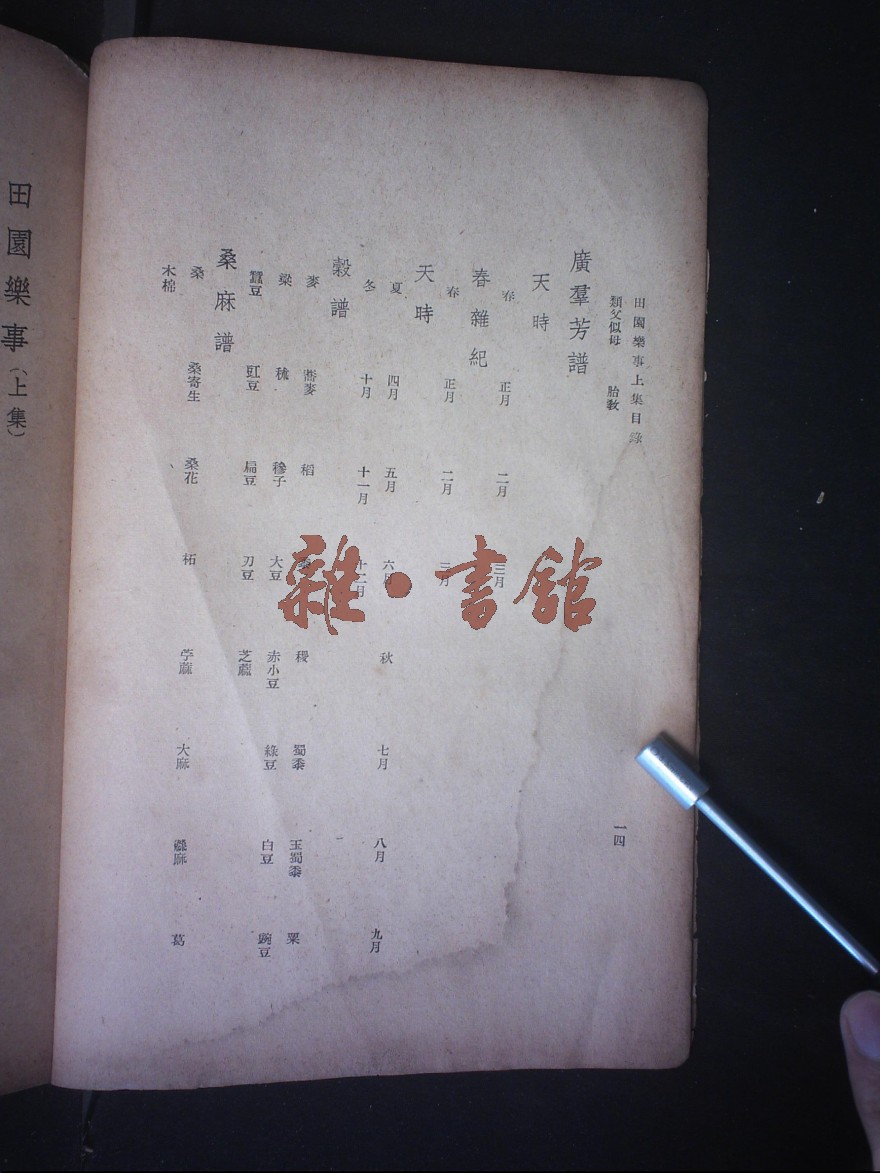 田園樂事上集目錄 一四
類父似母 胎教
廣羣芳譜
天時
春 正月 二月 三月
春雜紀
春 正月 二月 三月
天時
夏 四月 五月 六月 秋 七月 八月 九月
冬 十月 十一月 十二月
穀譜
麥 蕎麥 稻 稷 蜀黍 玉蜀黍 粟
粱 穇子 大豆 赤小豆 綠豆 白豆 豌豆
蠶豆 豇豆 扁豆 刀豆 芝蔴
桑麻譜
桑 桑寄生 桑花 柘 苧蔴 大麻 葛
木棉
田園樂事(上集)
雜·書館